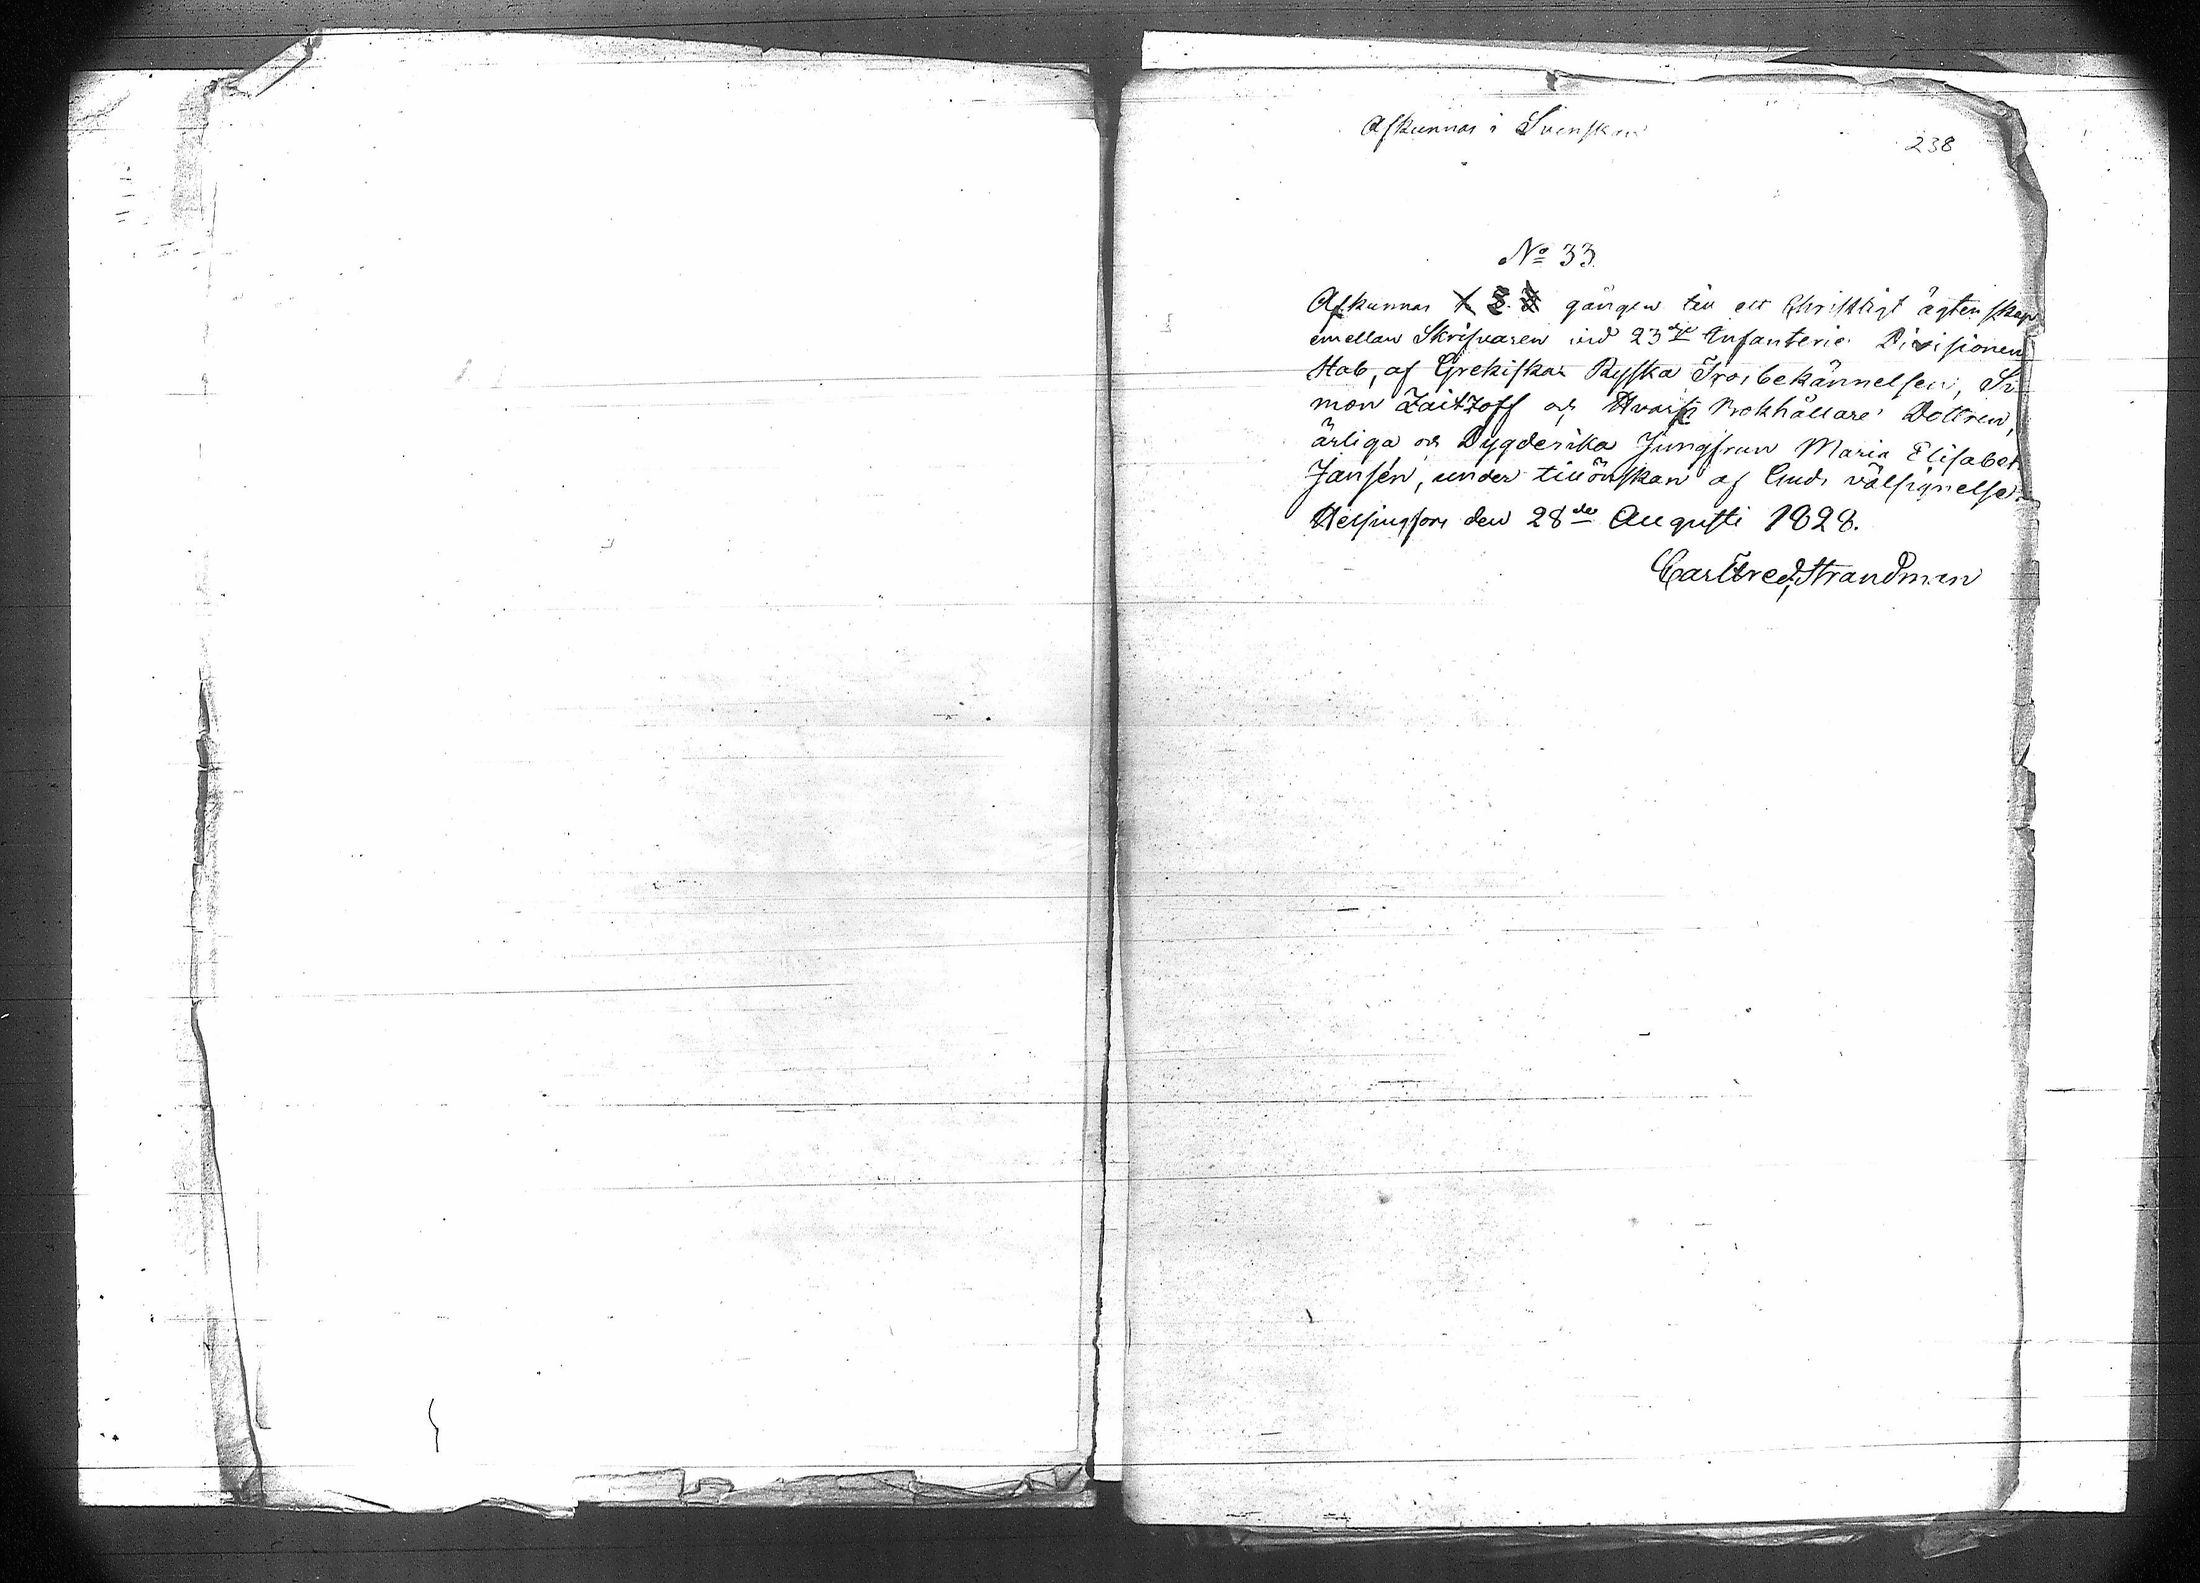 Afkunnas i Svenskan
238
No 33.
Afkunnas 1 2. 3 gången till ett Christligt ägtenskap
emellan Skrifvaren vid 23dje Infanterie Divisionens
Stab, af Grekiska Ryska Trosbekännelsen, Si-
mon Zaitzoff och Krokhållare Dottren,
ärliga och Dygderika Jungfrun Maria Elisabet
Jansén, under tillönskan af Guds välsignelse.
Helsingfors den 28de Augusti 1828.
Carl Fred. Strandman